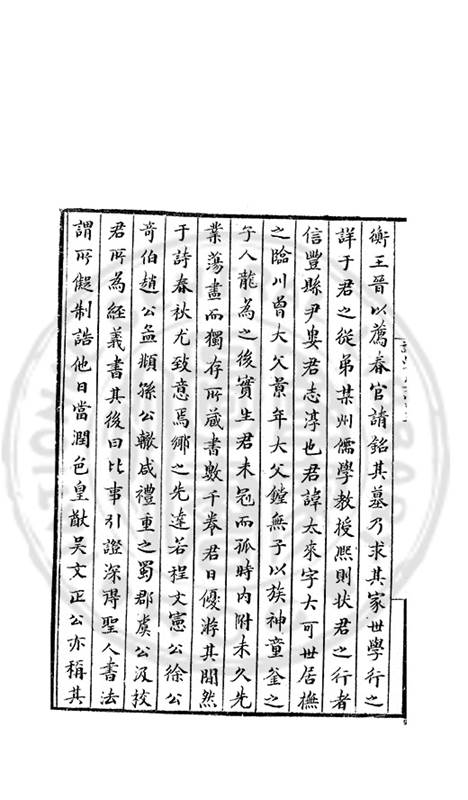 衡王晉以薦春官請銘其墓乃求其家世學行之
詳于君之從弟某州儒學教授熙則狀君之行者
信豐縣尹婁君志淳也君諱太來字大可世居撫
之臨川曾大父景年大父鏜無子以族神童釜之
子人龍為之後實生君未冠而孤時内附未久先
業蕩盡而獨存所藏書數千券君日優游其間然
于詩春秋尤致意焉鄉之先達若程文憲公徐公
奇伯趙公孟頫孫公轍咸禮重之蜀郡虞公汲按
君所為經義書其後曰比事引證深得聖人書法
謂所儗制誥他日當潤色皇猷吳文正公亦稱其